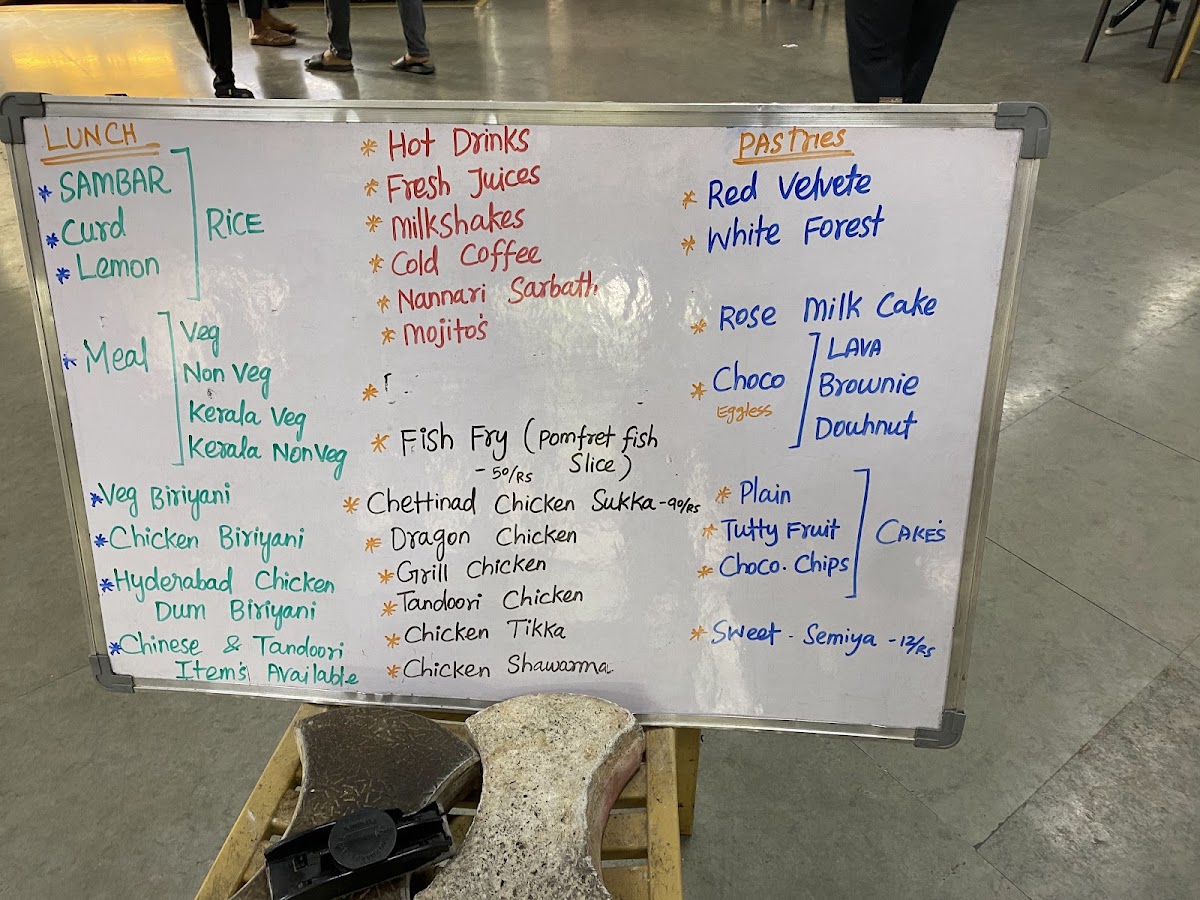 LUNCH
* SAMBAR
* Curd
* Lemon
RICE
* Meal
Veg
Non Veg
Kerala Veg
Kerala NonVeg
* Veg Biriyani
* Chicken Biriyani
* Hyderabad Chicken
Dum Biriyani
* Chinese & Tandoori
Item's Available
* Hot Drinks
* Fresh Juices
* Milkshakes
* Cold Coffee
* Nannari Sarbath
* Mojito's
*
* Fish Fry (Pomfret fish
- 50/RS Slice)
* Chettinad Chicken Sukka - 90/RS
* Dragon Chicken
* Grill Chicken
* Tandoori Chicken
* Chicken Tikka
* Chicken Shawarma
PASTries
* Red Velvete
* White Forest
* Rose Milk Cake
* Choco
Eggless
LAVA
Brownie
Douhnut
* Plain
* Tutty Fruit
* Choco. Chips
CAKE'S
* Sweet - Semiya - 12/RS